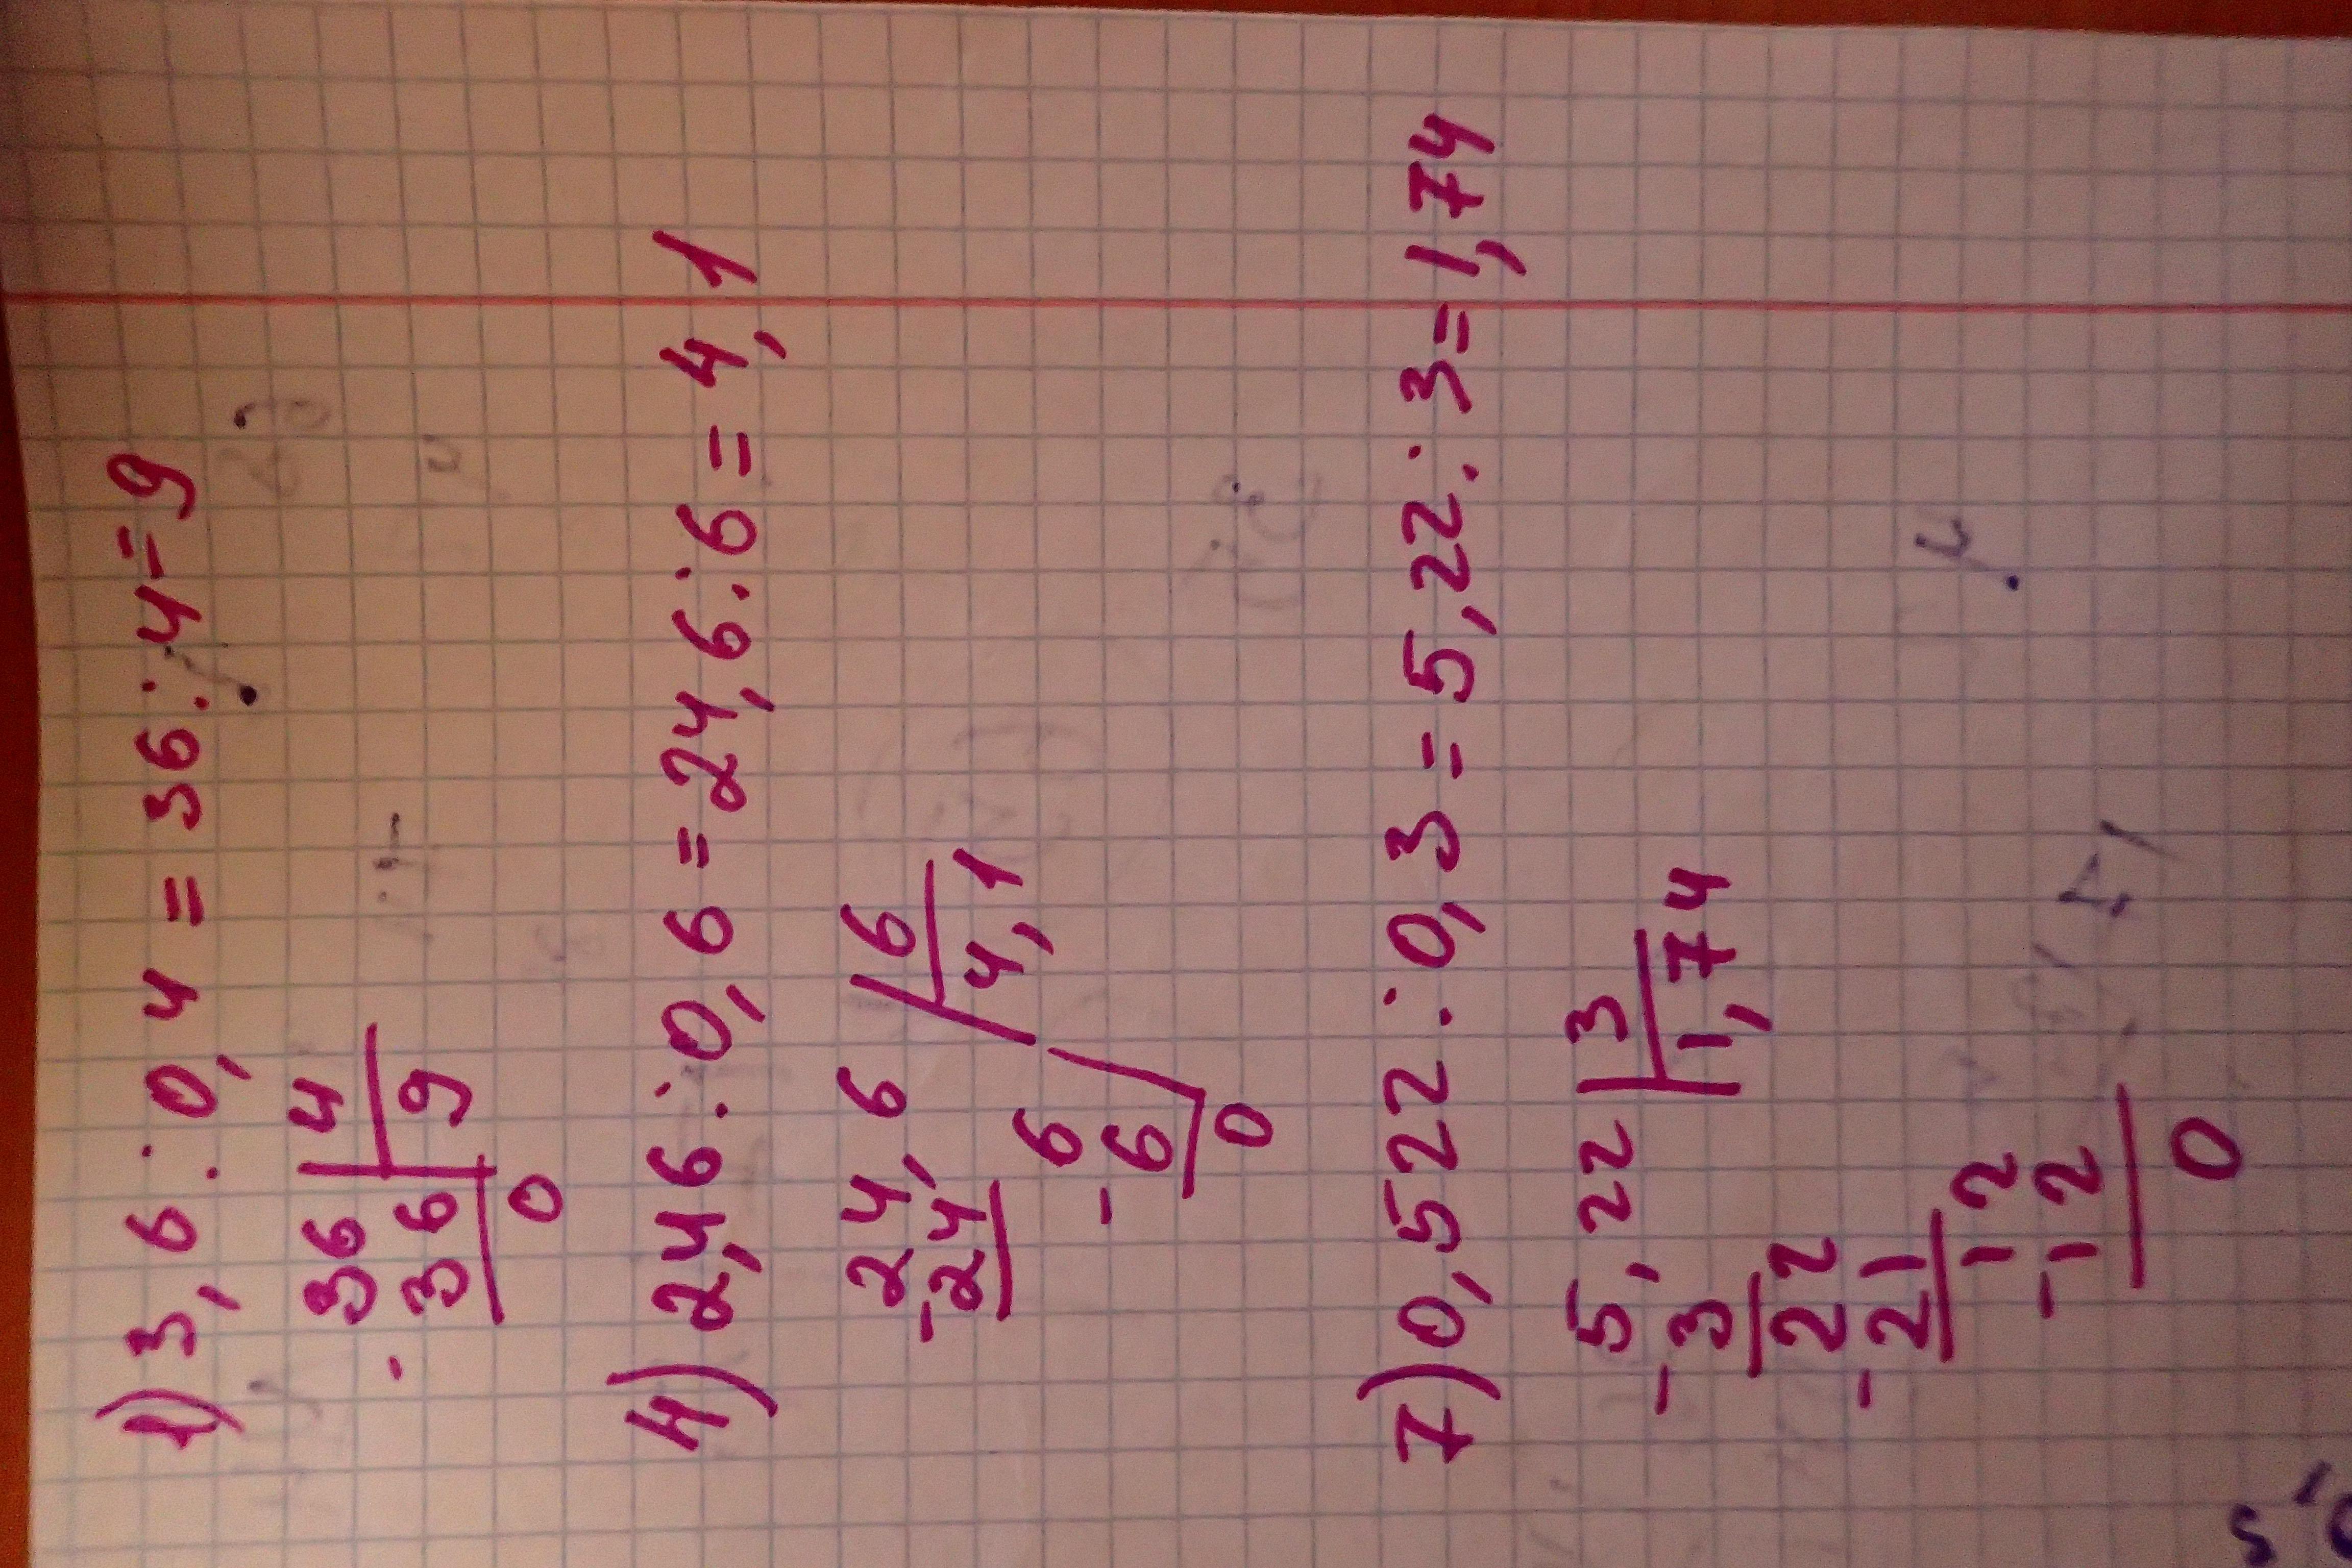 1) 3,6 : 0,4 = 36 : 4 = 9
36 | 4
- 36 | 9
0
4) 2,46 : 0,6 = 24,6 : 6 = 4,1
24,6 | 6
- 24 | 4,1
6
- 6
0
7) 0,522 : 0,3 = 5,22 : 3 = 1,74
5,22 | 3
- 3 | 1,74
22
- 21
12
- 12
0